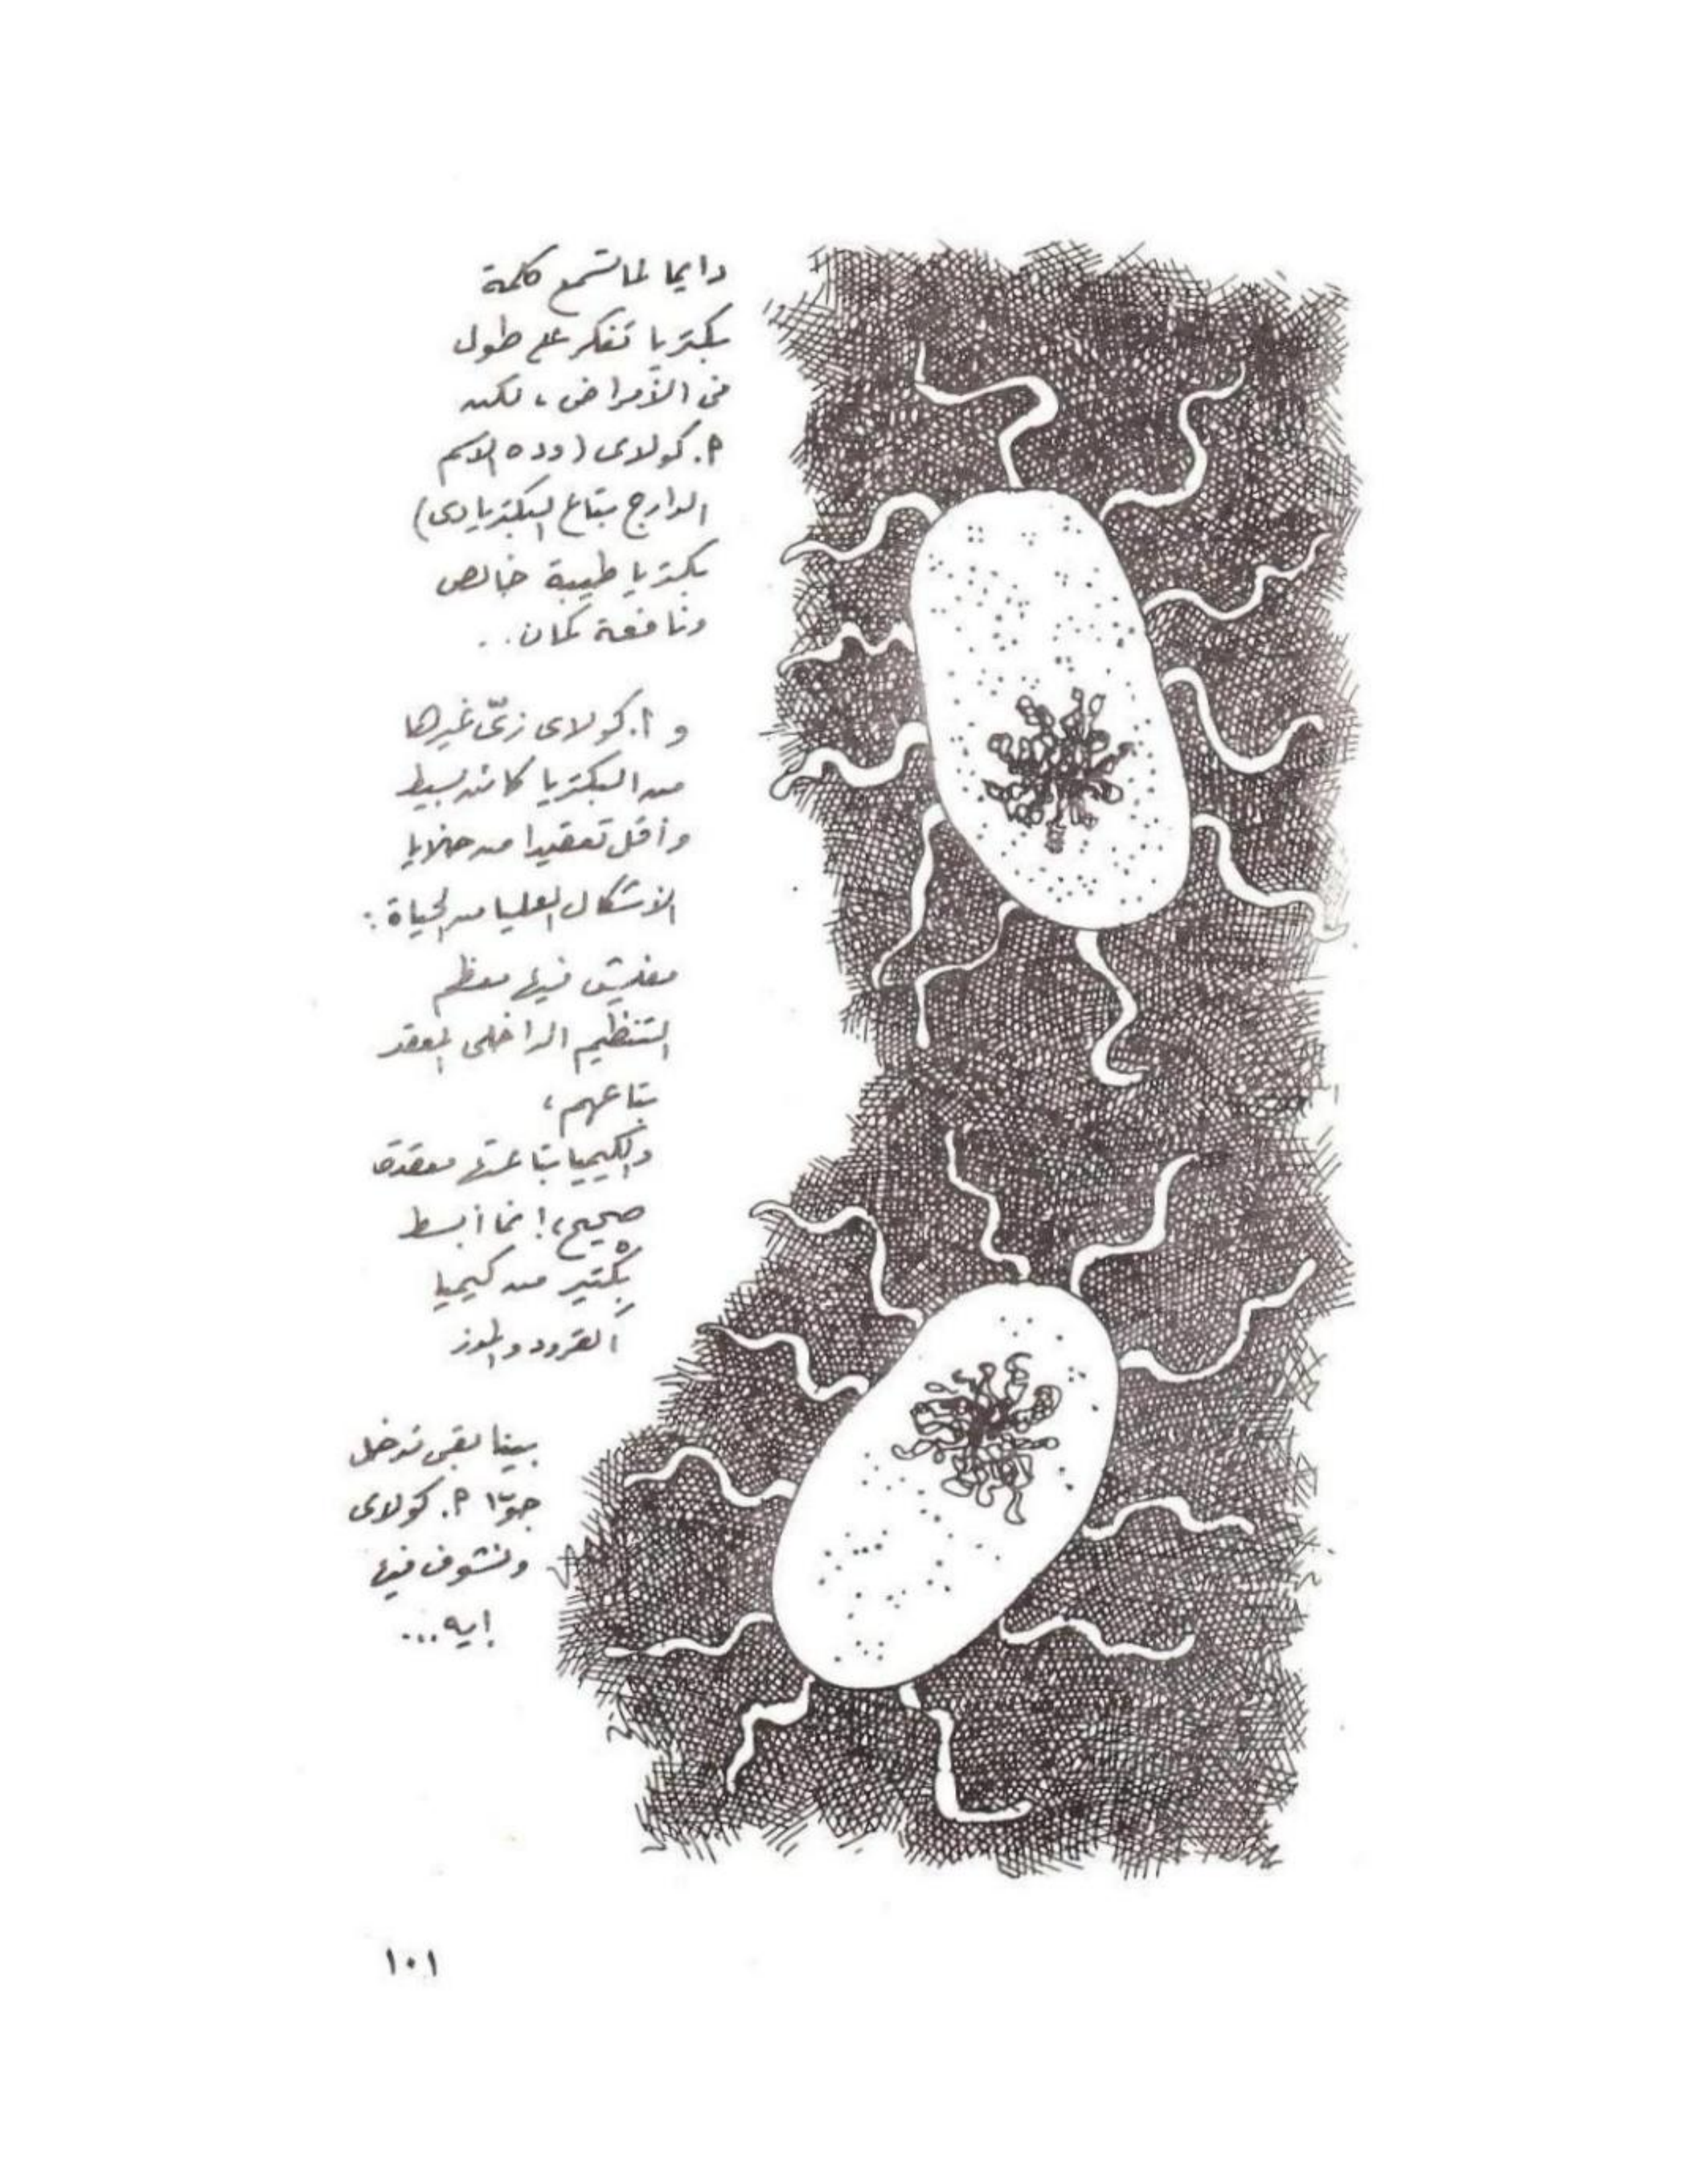 دايما لما تسمع كلمة
بكتريا تفكر على طول
فى الأمراض، لكن
إ. كولاى (وده الاسم
الدارج بتاع البكتريا دى)
بكتريا طيبة خالص
ونافعة كمان..
و إ. كولاى زىّ غيرها
من البكتريا كائن بسيط
وأقل تعقيدا من خلايا
الأشكال العليا من الحياة:
مفيش فيها معظم
التنظيم الداخلى المعقد
بتاعهم،
والكيميا بتاعتها معقدة
صحيح، إنما أبسط
بكتير من كيميا
القرود والموز
بينا بقى ندخل
جوّا إ. كولاى
ونشوف فيها
إيه...
١٠١